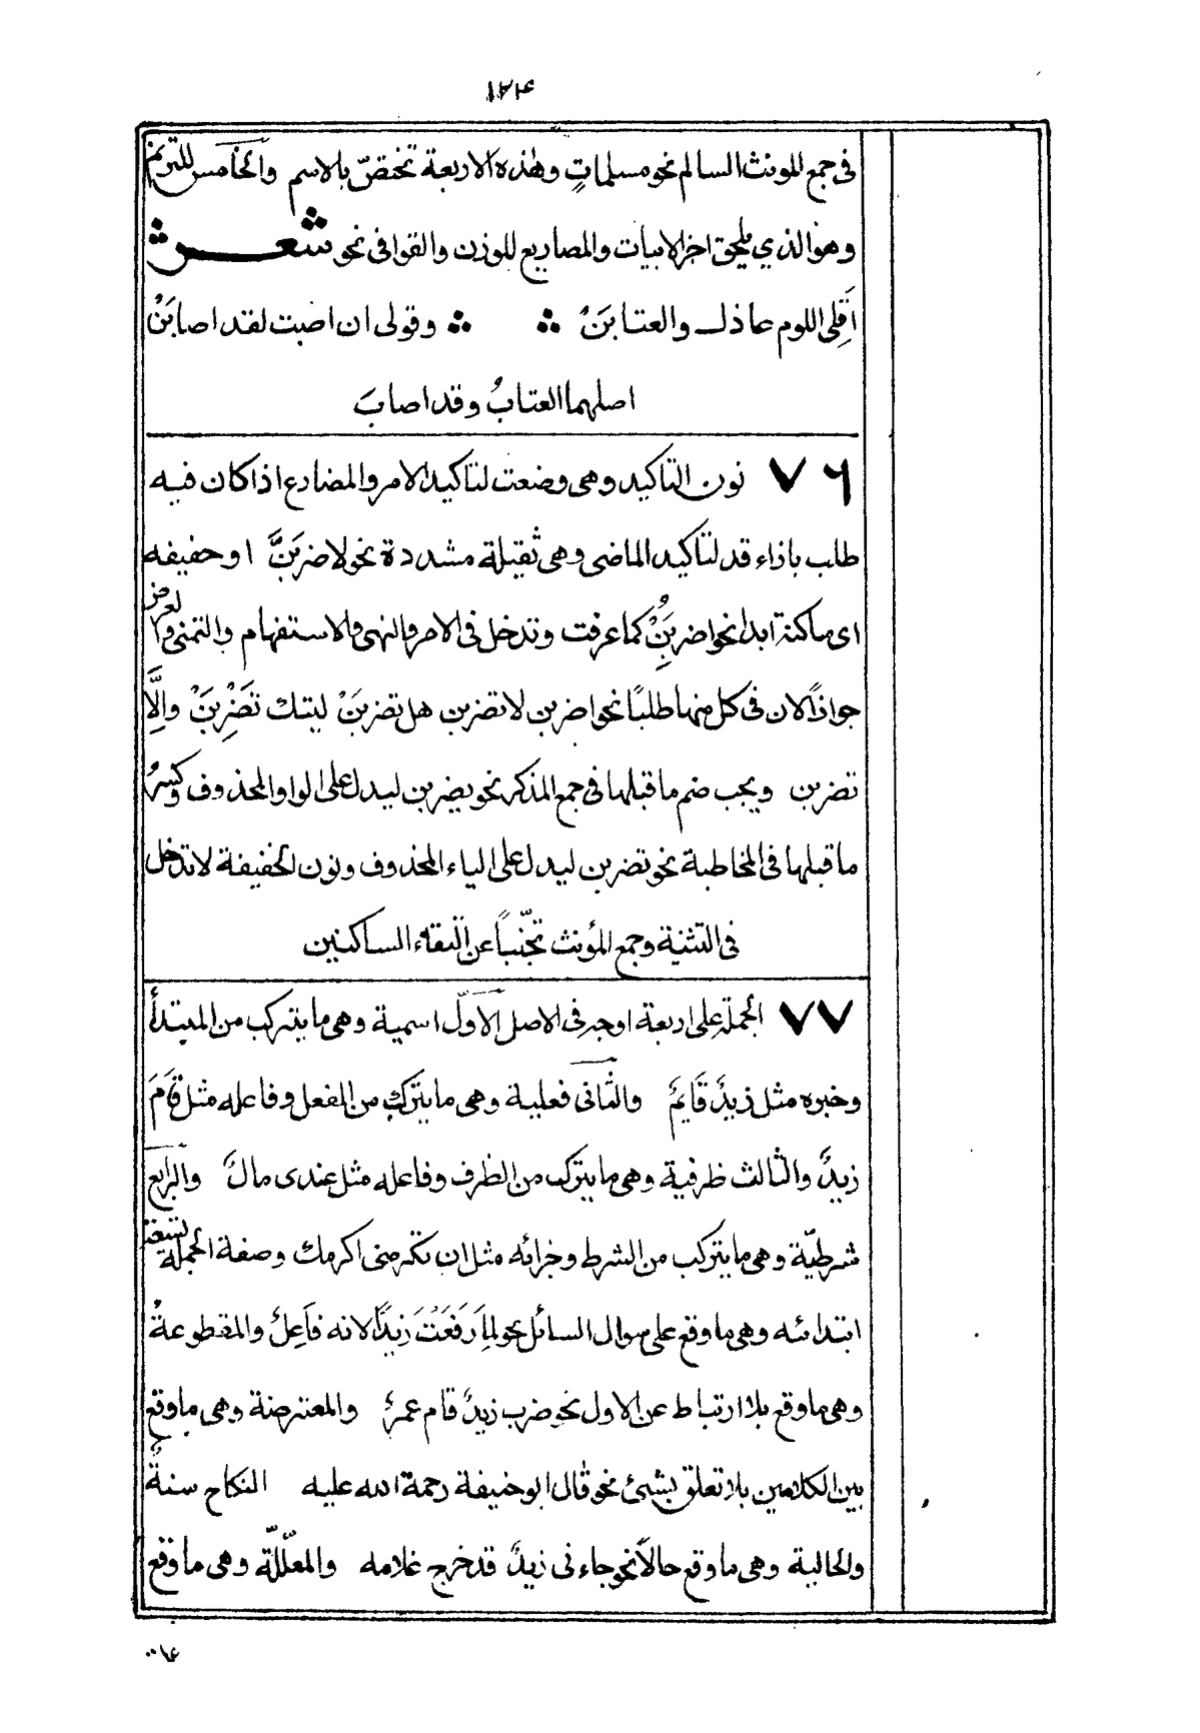 ١٢٤
فى جمع المونث السالم نحو مسلماتٍ وهٰذه الاربعة تختصّ بالاسم والخامس للترنم
وهو الذي يلحق اخر الابيات والمصاريع للوزن والقوافى نحو شعر
اَقِلى اللوم عاذل والعتابَنْ ∴ ∴ وقولى ان اضبت لقد اصابَنْ
اصلهما العتابُ وقد اصابَ
٧٦ نون التاكيد وهى وضعت لتاكيد الامر والمضارع اذا كان فيه
طلب باذاء قد لتاكيد الماضى وهى ثقيلة مشددة نحو لاضربَنَّ او خفيفه
اى ساكنة ابدا نحو اضربُِنْ كما عرفت وتدخل فى الامر والنهى والاستفهام والتمنى والعرض
جوازًا لان فى كل منها طلبًا نحو اضربن لا تضربن هل تضربَنْ ليتك تَضْرِبَنْ واِلَّا
تضربن ويجب ضم ما قبلها فى جمع المذكر نحو يضربن ليدل على الواو المحذوف وكسرُ
ما قبلها فى المخاطبة نحو تضربن ليدل على الياء المحذوف ونون الخفيفة لا تدخل
فى التثنية وجمع المؤنث تجنّبًا عن التقاء الساكنين
٧٧ الجملة على اربعة اوجه فى الاصل الاوّل اسمية وهى ما يتركب من المبتدأ
وخبره مثل زيدٌ قَايمٌ والثانى فعلية وهى ما يتركب من الفعل وفاعله مثل قَامَ
زيدٌ والثالث ظرفية وهى ما يتركب من الظرف وفاعله مثل عندى مالٌ والرابع
شرطيّة وهى ما يتركب من الشرط وجزائه مثل ان تكرمنى اكرمك وصفة الجملة
ابتدائه وهى ما وقع على سوال السائل نحو لِمَ رَفَعْتَ زيدًا لانه فاَعِلٌ والمقطوعةُ
وهى ما وقع بلا ارتباط عن الاول نحو ضرب زيدٌ قام عمرٌ والمعترضة وهى ما وقع
بين الكلامين بلا تعلق بشئ نحو قال ابو حنيفة رحمة الله عليه النكاح سنةٌ
والحالية وهى ما وقع حالاً نحو جاءنى زيدٌ قد خرج غلامه والمعلّلّة وهى ما وقع